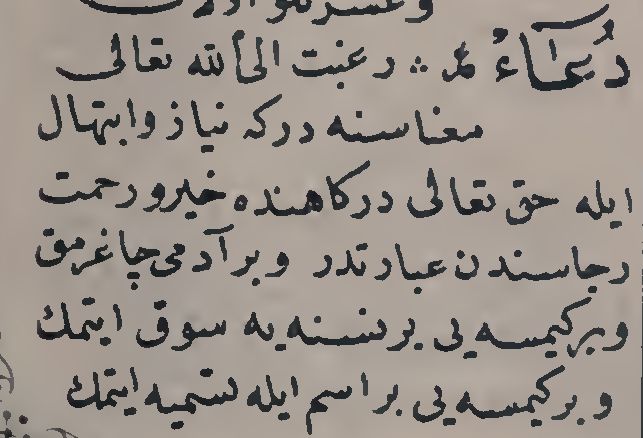 دُعَاءْ عد ∴ رغبت الى الله تعالى
معناسنه دركه نياز وابتهال
ايله حق تعالى دركاهنده خيرو رحمت
رجاسندن عبارتدر وبر آدمى چاغرمق
وبر كيمسه يى بر نسنه يه سوق ايتمك
وبر كيمسه يى بر اسم ايله تسميه ايتمك